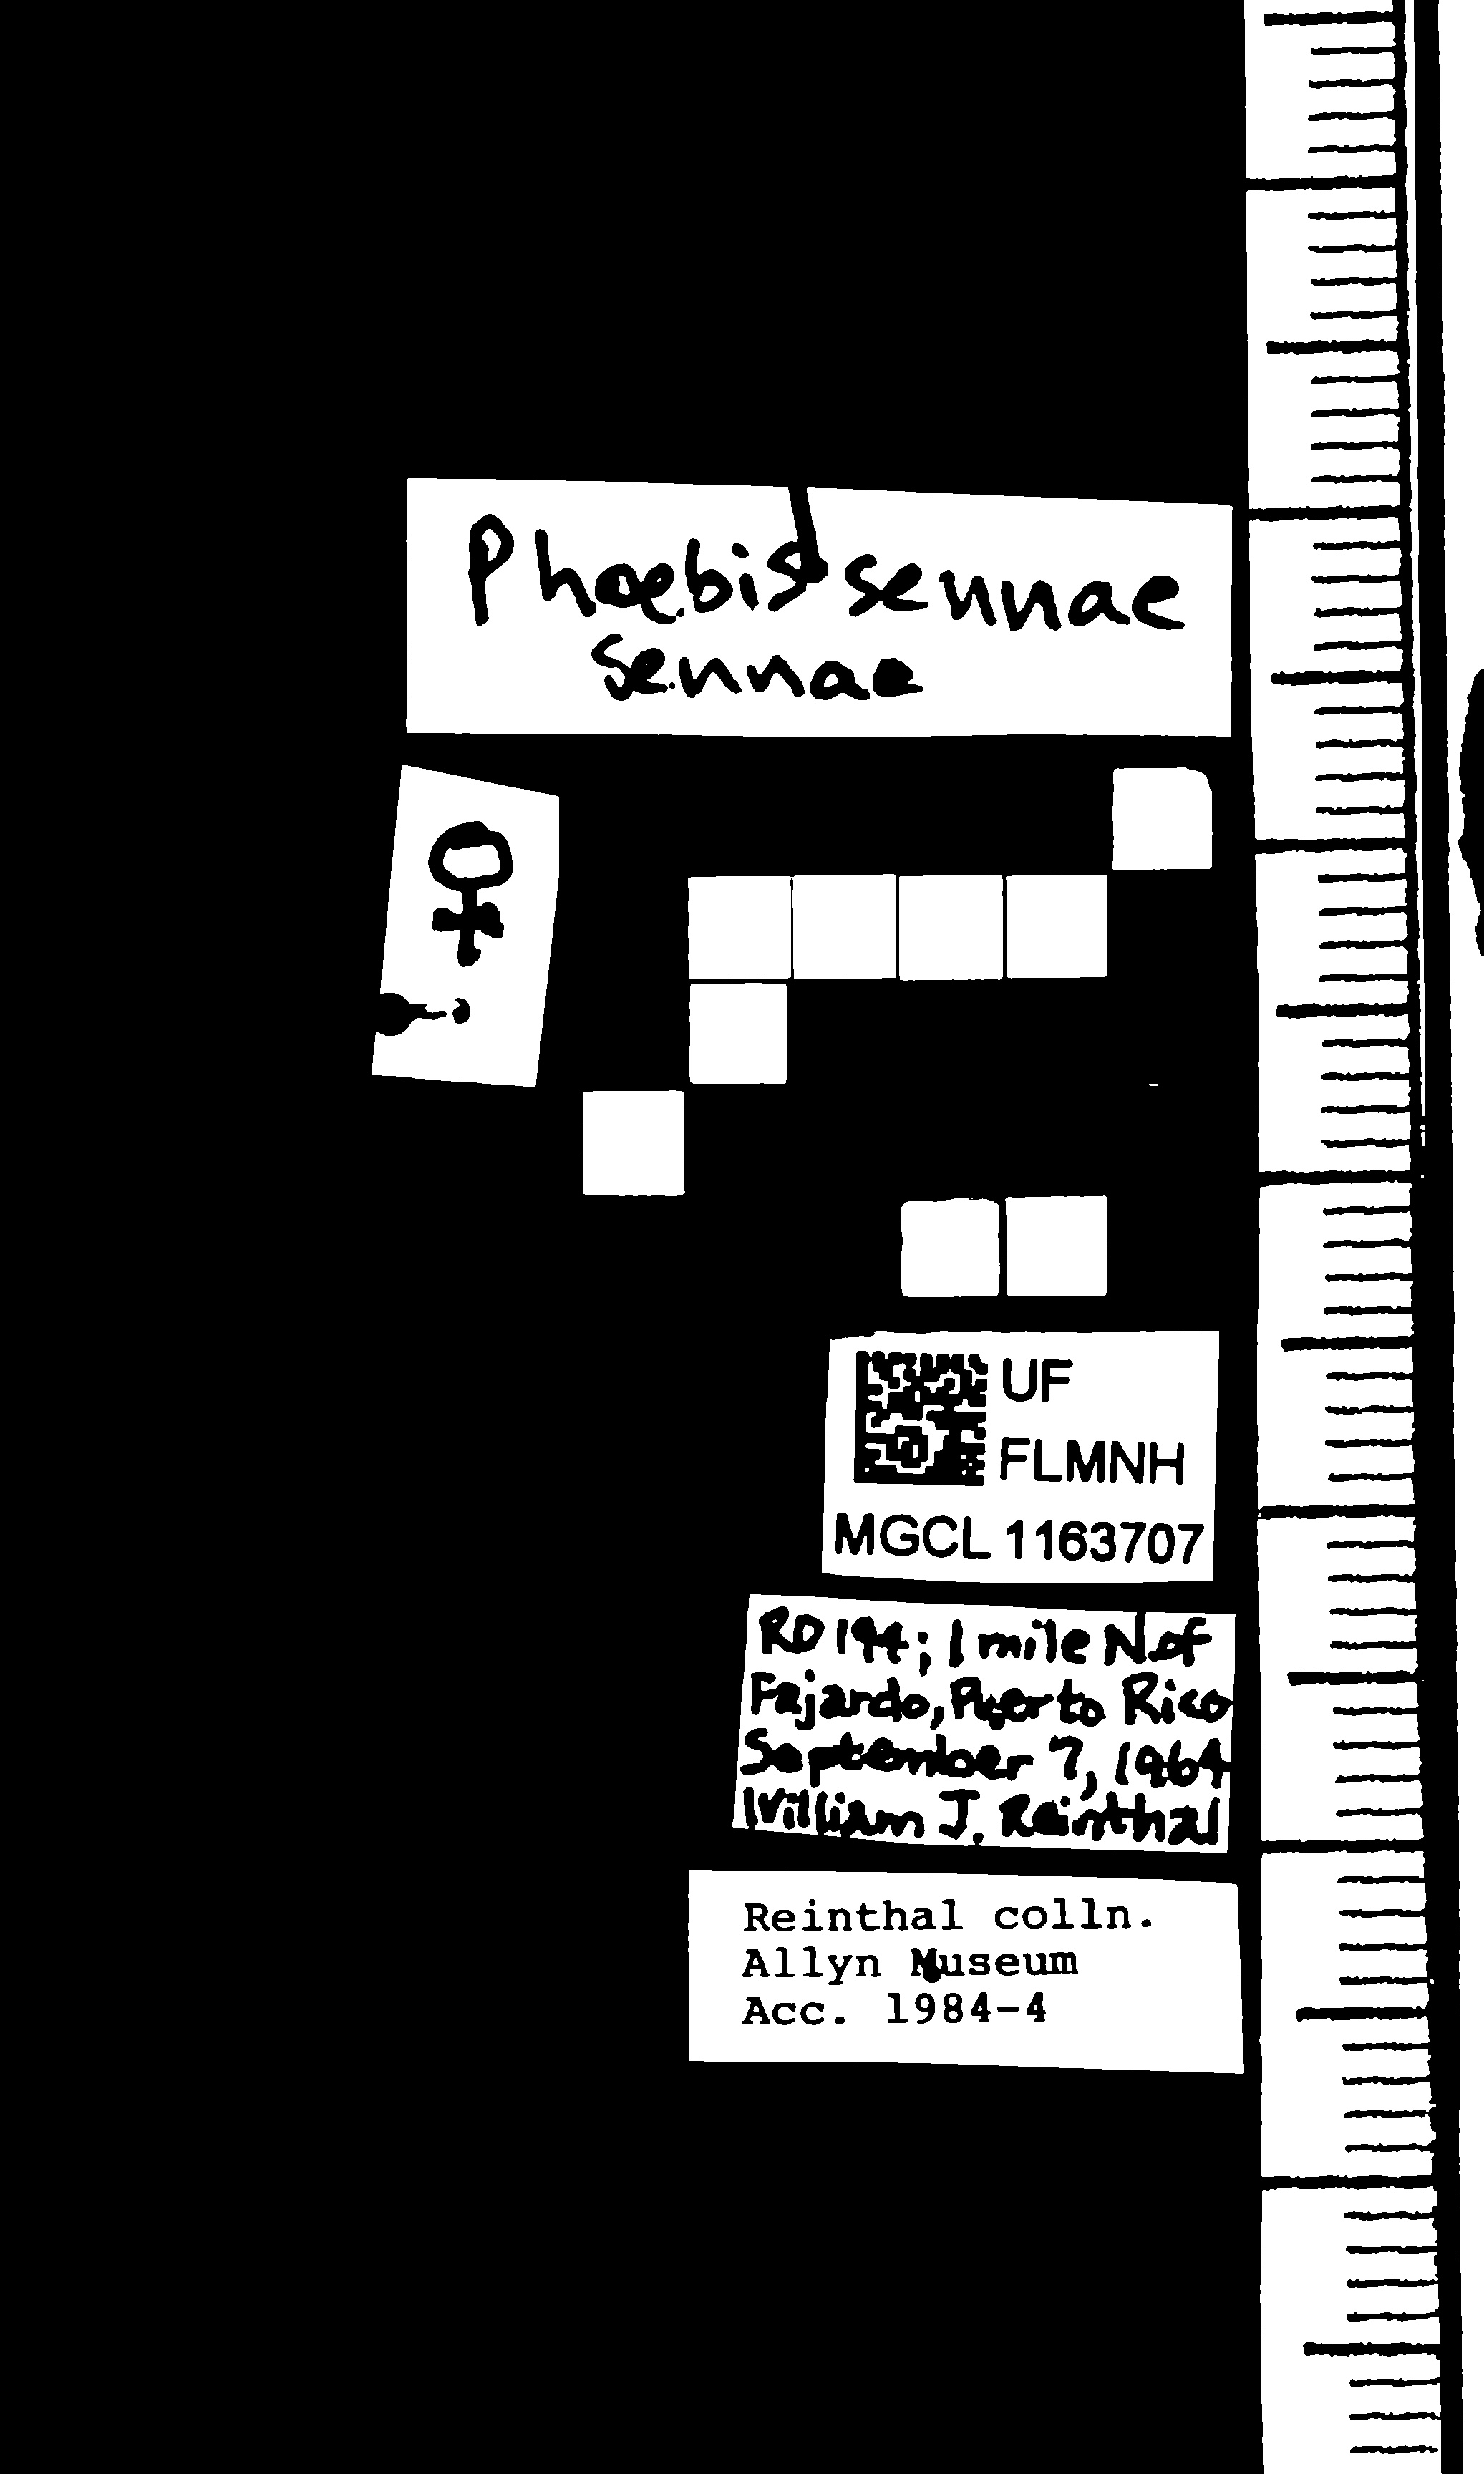 Phoebis sennae
sennae
♀
UF
FLMNH
MGCL 1163707
RD 194; 1 mile N of
Fajardo, Puerto Rico
September 7, 1964
William J. Reinthal
Reinthal colln.
Allyn Museum
Acc. 1984-4